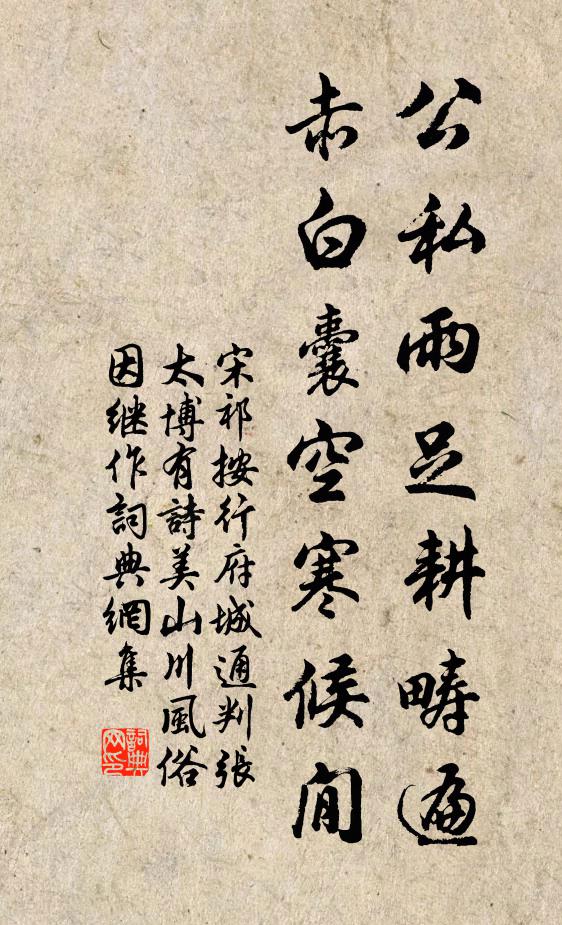 公私雨足耕疇遍
赤白囊空寒候閒
宋祁按行府城通判張
太博有詩美山川風俗
因継作詞典網集
詞典網印